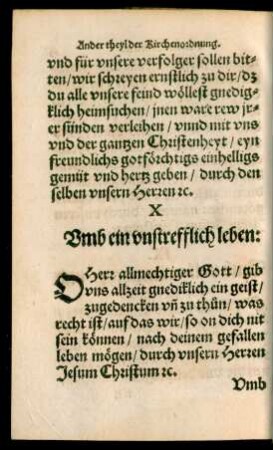 Ander theyl der Kirchenordnung.
vnd für vnsere verfolger sollen bit-
ten/ wir schreyen ernstlich zu dir/ dz
du alle vnsere feind wöllest gnedig-
klich heimsuchen/ jnen ware rew jr-
er sünden verleihen/ vnnd mit vns
vnd der gantzen Christenheyt/ eyn
freundlichs gotförchtigs einhelligs
gemüt vnd hertz geben/ durch den
selben vnsern Herren ꝛc.
X
Vmb ein vnstrefflich leben:
O Herr allmechtiger Gott/ gib
vns allzeit gnediklich ein geist/
zugedencken vn̄ zu thůn/ was
recht ist/ auf das wir/ so on dich nit
sein können/ nach deinem gefallen
leben mögen/ durch vnsern Herren
Jesum Christum ꝛc.
Vmb